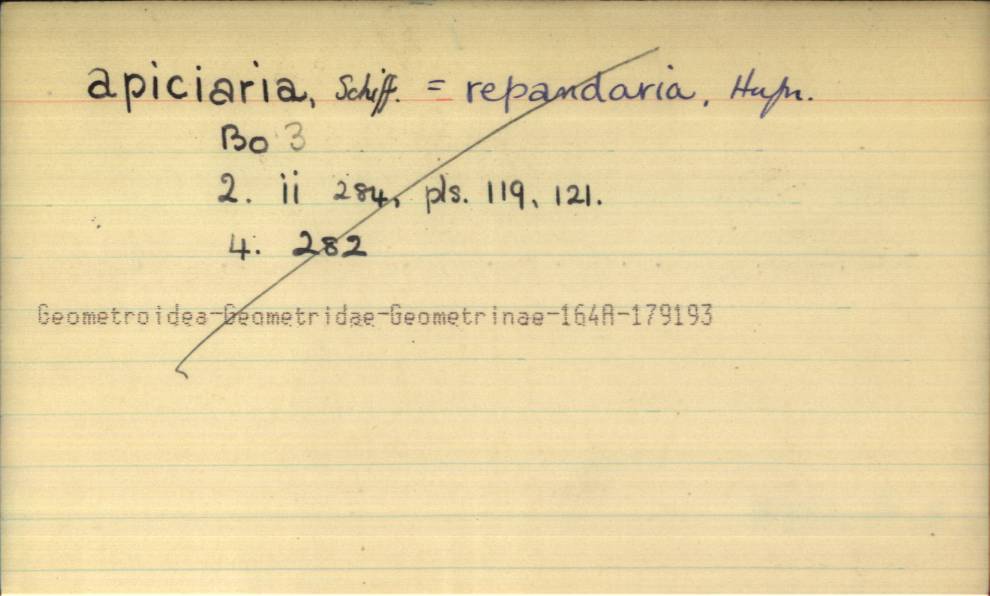 apiciaria, Schiff. = repandaria, Hufn.
Bo 3
2. ii 284, pls. 119, 121.
4. 282
Geometroidea-Geometridae-Geometrinae-164A-179193